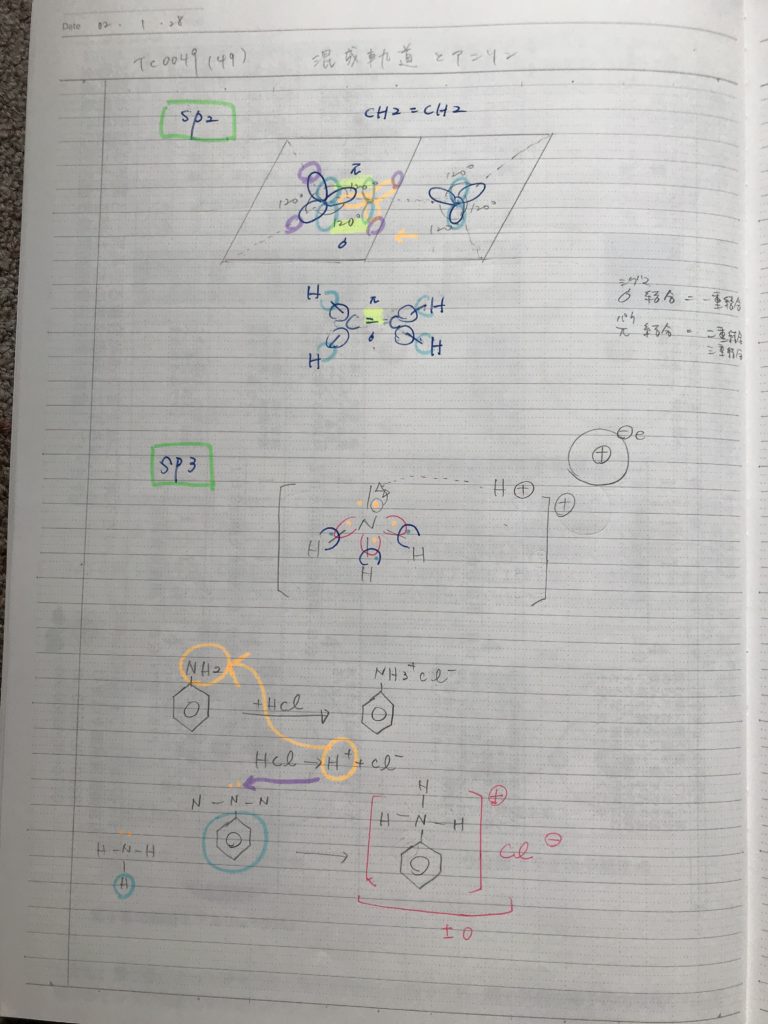 Date 02 . 1 . 28
Tc0049 (49) 混成軌道とアニリン
SP2
CH2=CH2
π
120° 120° 120°
120° 120° 120°
σ
H π H
C = C
σ
H H
シグマ
σ 結合 = 一重結合
パイ
π 結合 = 二重結合
三重結合
SP3
⊖e
⊕
H ⊕
⊕
N
H H
H
NH2
+HCl
NH3⁺Cl⁻
HCl → H⁺ + Cl⁻
N - N - N
H - N - H
H
H
H - N - H
⊕
Cl ⊖
±0